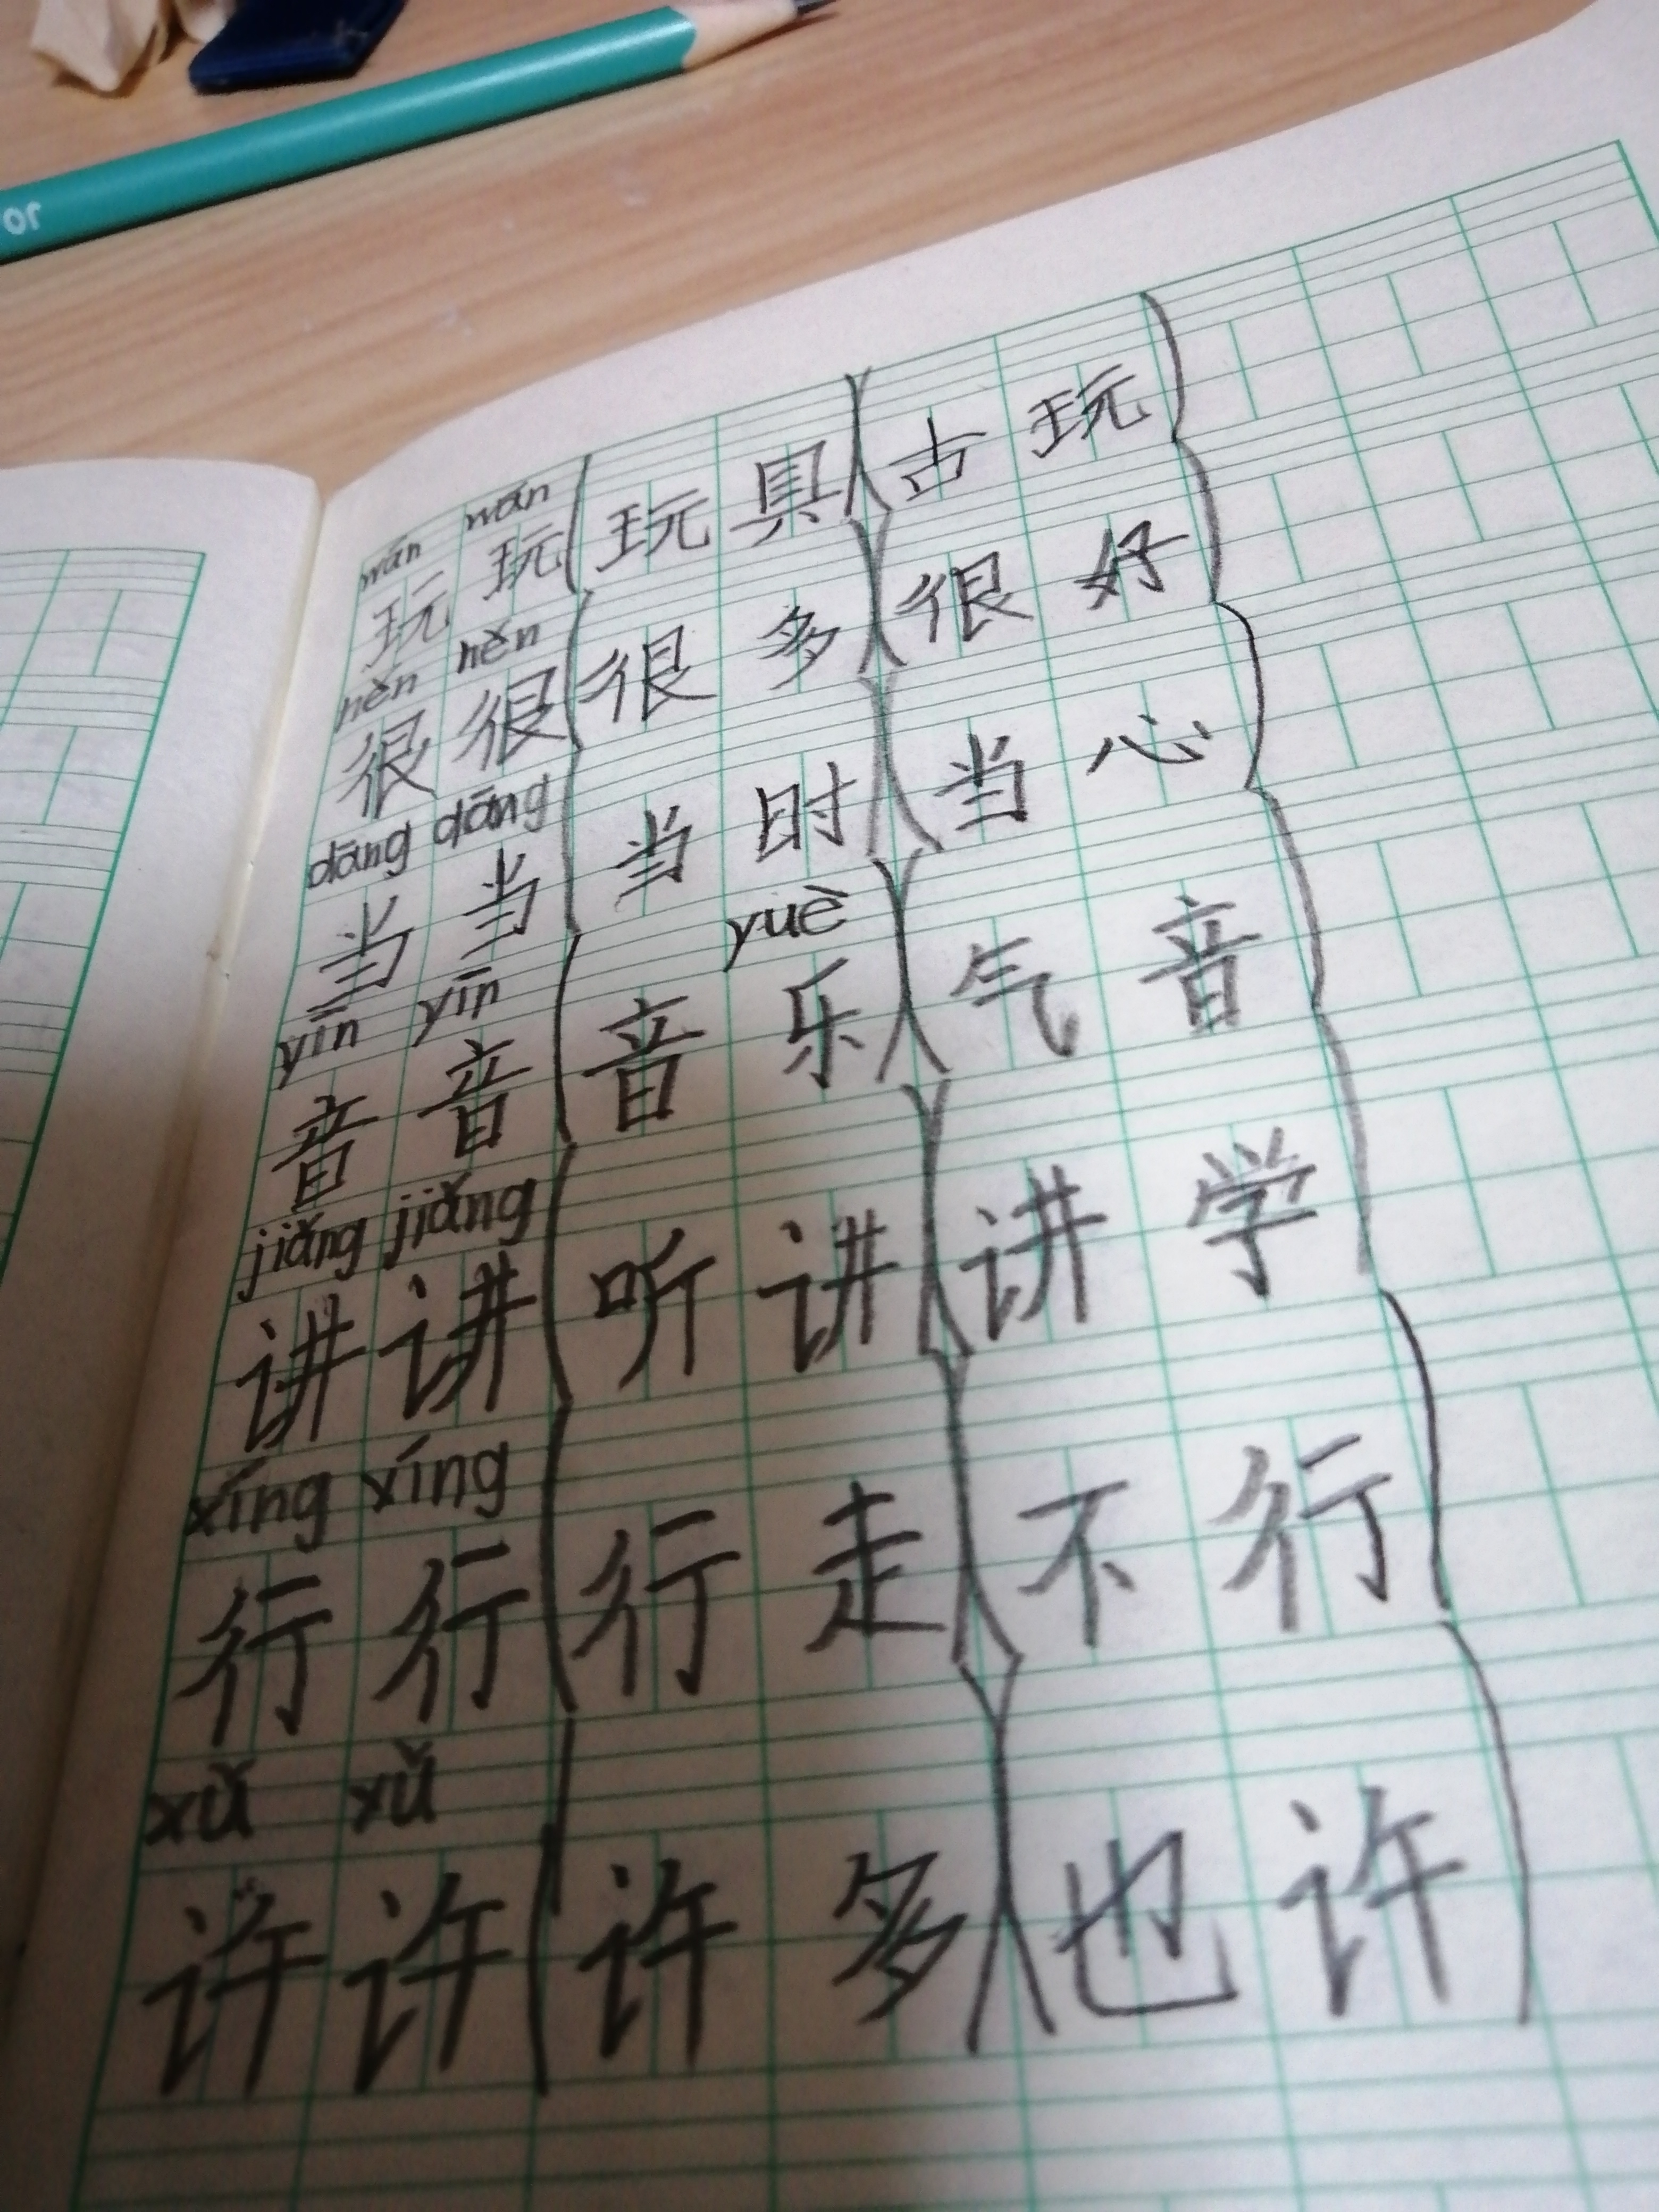 wán wán
玩 玩 玩 具 古 玩
hěn hěn
很 很 很 多 很 好
dāng dāng
当 当 当 时 当 心
yīn yīn yuè
音 音 音 乐 气 音
jiǎng jiǎng
讲 讲 听 讲 讲 学
xíng xíng
行 行 行 走 不 行
xǔ xǔ
许 许 许 多 也 许